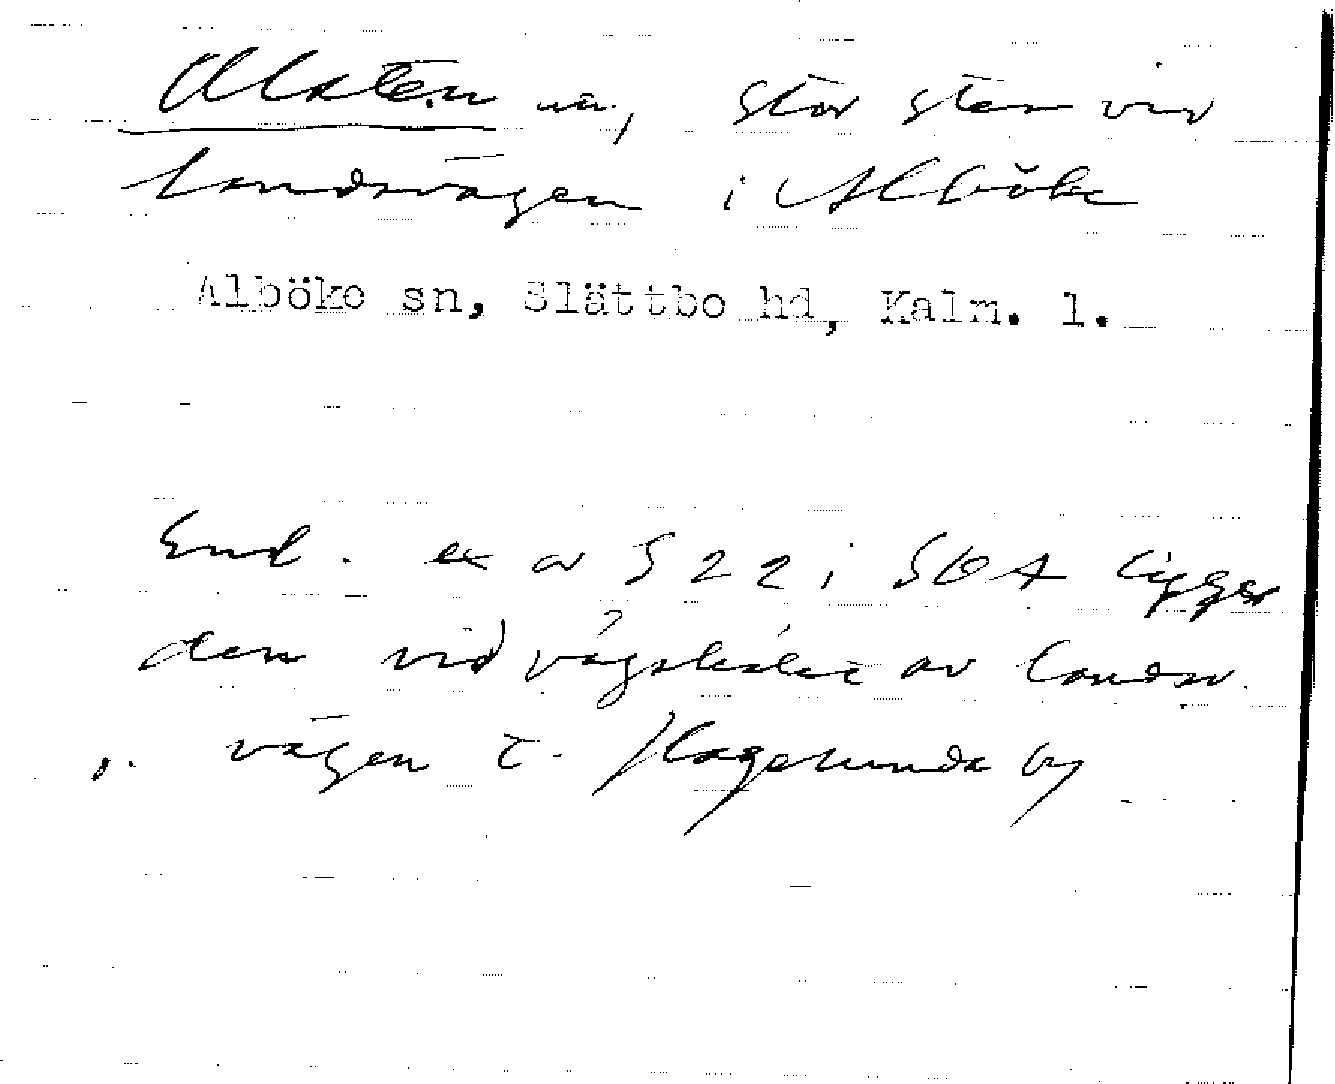 Alsten na, stor sten vid
landsvägen i Alböke
Alböke sn, Slättbo hd, Kalm. l.
End. ex av S 22 i SOA ligger
den vid vägskälet av landsv.
o. vägen t. Hagelunda by